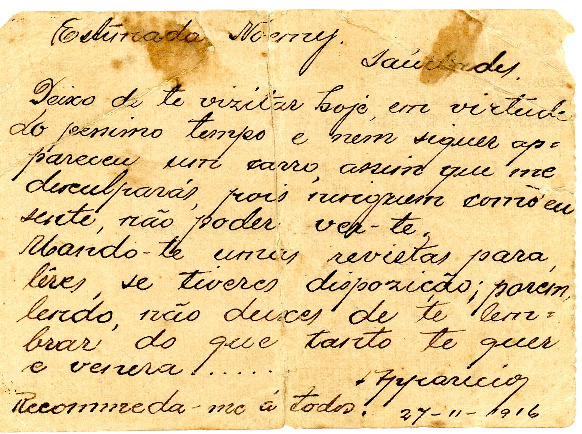 Estimada Noemy.
Saúdades.
Deixo de te vizitar hoje em virtude
do pessimo tempo e nem siquer ap-
pareceu um carro, assim que me
desculparás, pois ninguem como eu
sente, não poder ver-te.
Mando-te umas revistas para
lêres, se tiveres dispozição; porem,
lendo, não deixes de te lem-
brar do que tanto te quer
e venera......
Apparicio
Recommeda-me á todos. 27-11-916